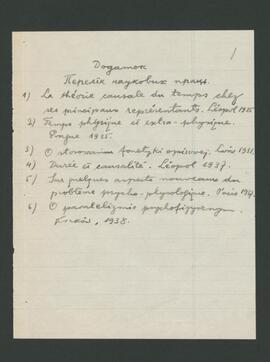 1
Додаток
Перелік наукових праць.
1) La théorie causale du temps chez
ses principaux représentants. Léopol 1935
2) Temps physique et extra-physique.
Prague 1935.
3) O stosowaniu fonetyki opisowej. Lwów 1931.
4) Durée et causalité. Léopol 1937.
5) Sur quelques aspects nouveaux du
problème psycho-physiologique. Paris 1937.
6) O paralelizmie psychofizycznym.
Kraków, 1938.